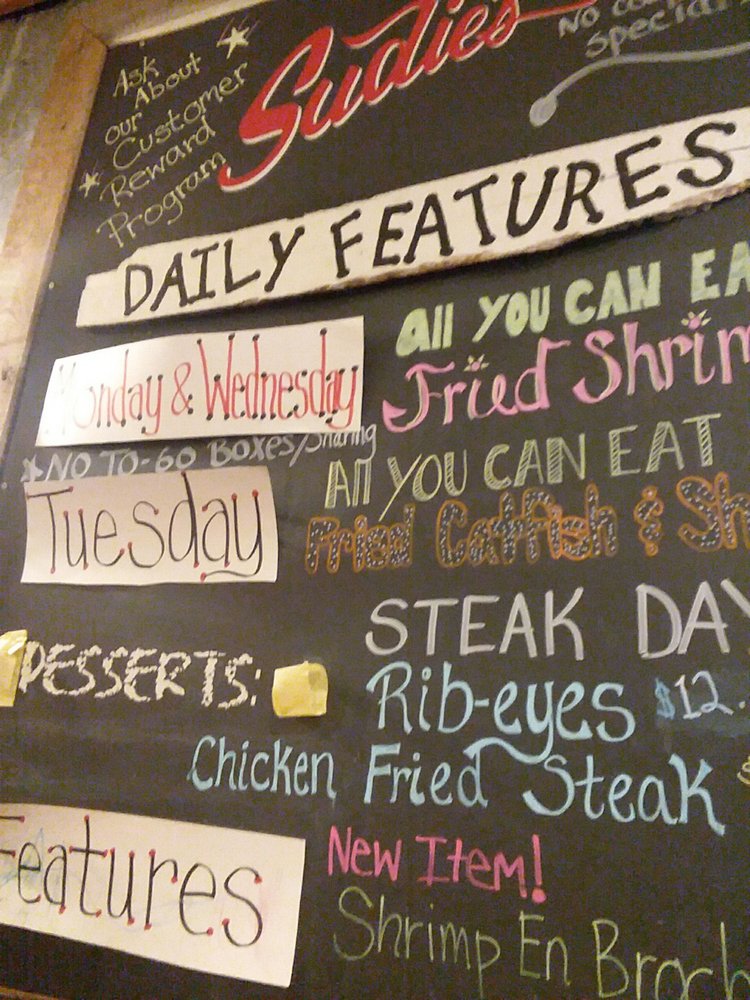 Ask
About
our
Customer
Reward
Program
Sudie's
No
Special
DAILY FEATURES
Monday & Wednesday
All YOU CAN EA
Fried Shrim
NO TO-GO BOXES/Sharing
Tuesday
All YOU CAN EAT
Fried Catfish & Sh
STEAK DAY
DESSERTS:
Rib-eyes $12.
Chicken Fried Steak
Features
New Item!
Shrimp En Broch